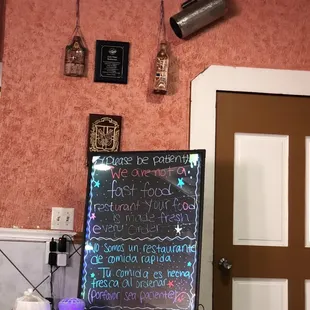 *Please be patient*
We are not a
fast food
resturant Your food
is made fresh
every order
No Somos un restaurante
de comida rapida.
Tu comida es hecha
fresca al ordenar
(porfavor sea paciente)